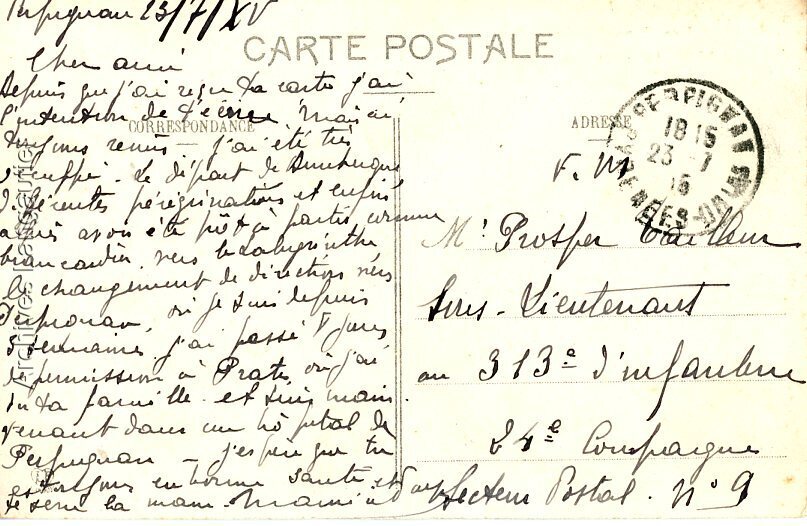 Perpignan 23/7/XV
CARTE POSTALE
Cher ami
Depuis que j'ai reçu ta carte j'ai
l'intention de t'écrire mais ai
CORRESPONDANCE
toujours remis - j'ai été très
Le départ de Dunkerque
différentes pérégrinations et enfin
après avoir été prêt à partir comme
brancardier vers le Labyrinthe
le changement de direction vers
Perpignan, où je suis depuis
3 semaines j'ai passé 8 jours
de permission à Prats, où j'ai
vu ta famille et suis main-
tenant dans un hôpital de
Perpignan - j'espère que tu
es toujours en bonne santé et
te serre la main.
ADRESSE
F. M
PERPIGNAN
18 15
23 - 7
15
PYRENEES-ORLES
Mr Prosper Tailleur
Sous-Lieutenant
au 313e d'infanterie
24e Compagnie
Secteur Postal. No 9
Archives Tesseurier